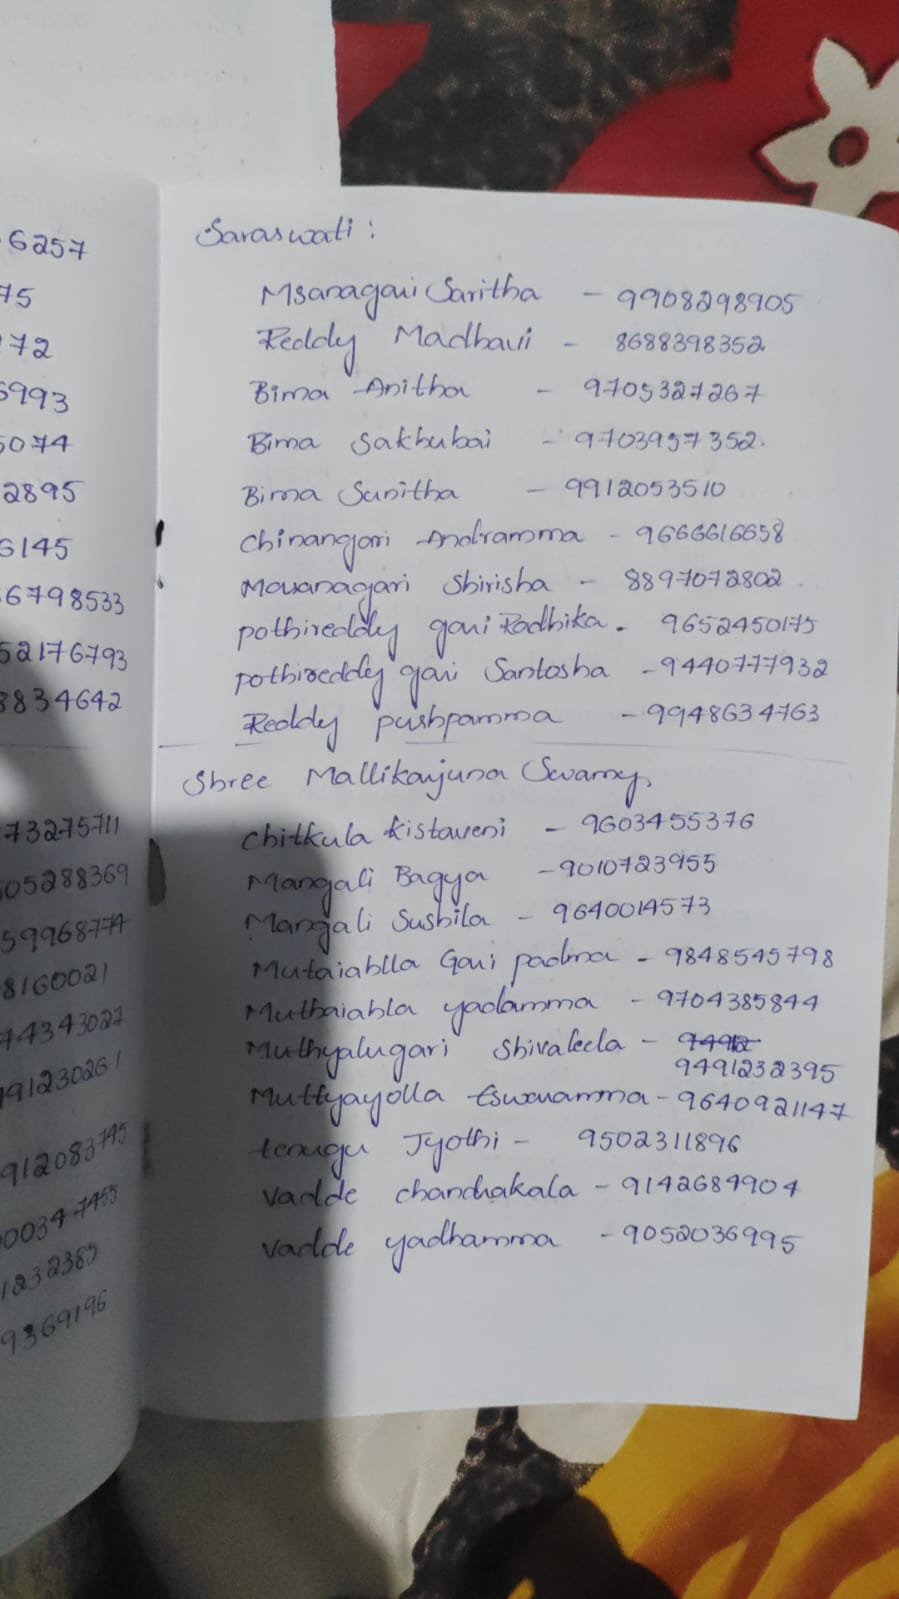 6257
75
172
6993
5074
2895
6145
6798533
52176793
8834642
73275711
05288369
59968774
8160021
74343027
991230261
912083745
00347455
1232385
9369196
Saraswati :
Msanagari Saritha - 9908298905
Reddy Madhavi - 8688398352
Bima Anitha - 9705327267
Bima Sakhubai - 9703957352.
Bima Sunitha - 9912053510
Chinangari Andramma - 9666616658
Mavanagari Shirisha - 8897072802
pothireddy gari Radhika - 9652450175
pothireddy gari Santosha - 9440777932
Reddy pushpamma - 9948634763
Shree Mallikarjuna Swamy
Chitkula Kistaveni - 9603455376
Mangali Bagya - 9010723955
Mangali Sushila - 9640014573
Mutaiablla Gari padma - 9848545798
Muthaiabla yadamma - 9704385844
Muthyalugari Shivaleela - 
9491232395
Muttyayolla Eswaramma - 9640921147
tenugu Jyothi - 9502311896
Vadde chandrakala - 9142684904
Vadde yadhamma - 9052036995